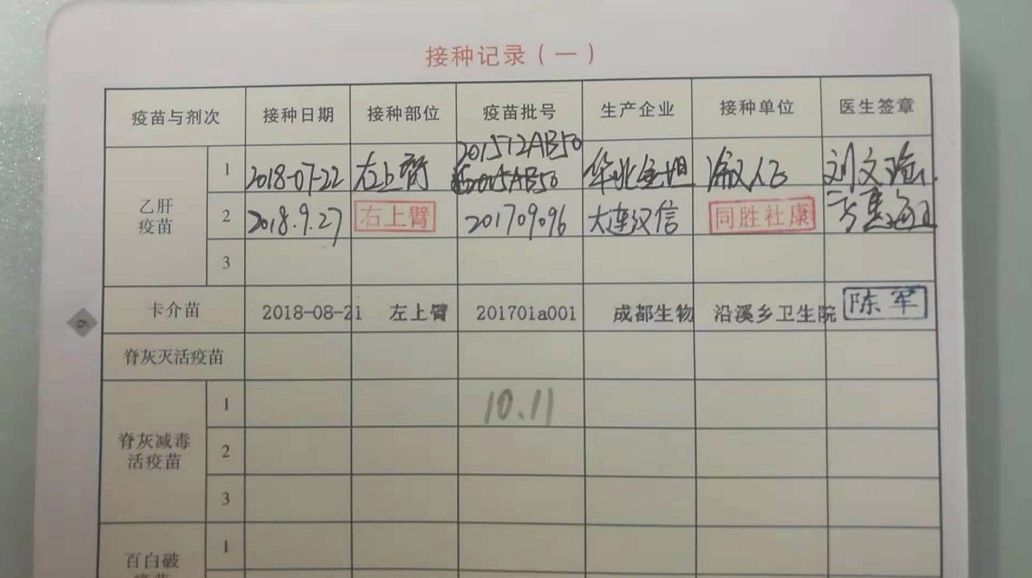 接种记录（一）
疫苗与剂次 接种日期 接种部位 疫苗批号 生产企业 接种单位 医生签章
乙肝疫苗 1 2018-07-22 左上臂 201512AB50 华北金坦 人民 刘文
2 2018.9.27 右上臂 201709096 大连汉信 同胜社康
3
卡介苗 2018-08-21 左上臂 201701a001 成都生物 沿溪乡卫生院 陈军
脊灰灭活疫苗
脊灰减毒活疫苗 1 10.11
2
3
百白破 1
6